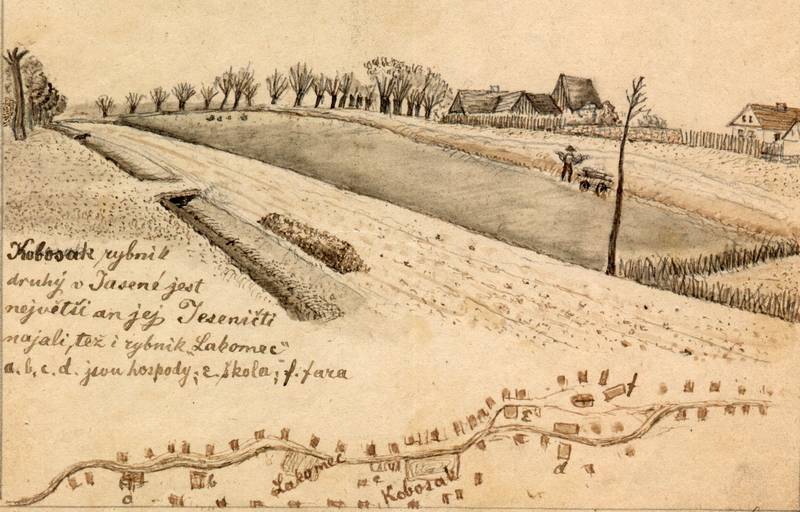 Kobosak rybník
druhý v Jasené jest
největší an jej Jeseničti
najali, též i rybník „Lakomec“
a. b. c. d. jsou hospody; ε. škola; f. fara
f
ε
Lakomec
c
d
a
b
Kobosak